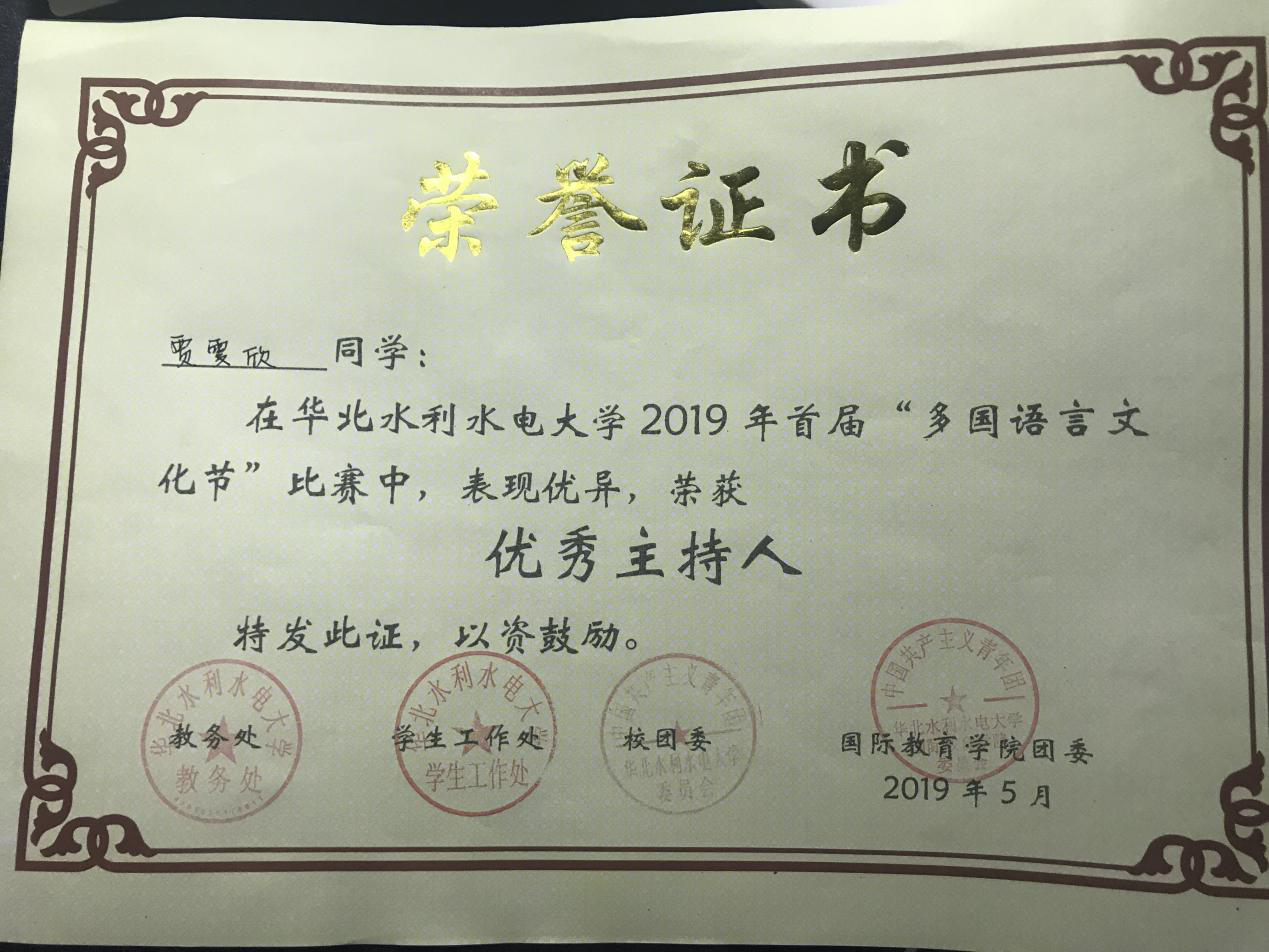 荣誉证书
贾雯欣 同学:
在华北水利水电大学2019年首届“多国语言文
化节”比赛中,表现优异,荣获
优秀主持人
特发此证,以资鼓励。
教务处 学生工作处 校团委 国际教育学院团委
2019年5月
华北水利水电大学
教务处
华北水利水电大学
学生工作处
中国共产主义青年团
华北水利水电大学
委员会
中国共产主义青年团
华北水利水电大学